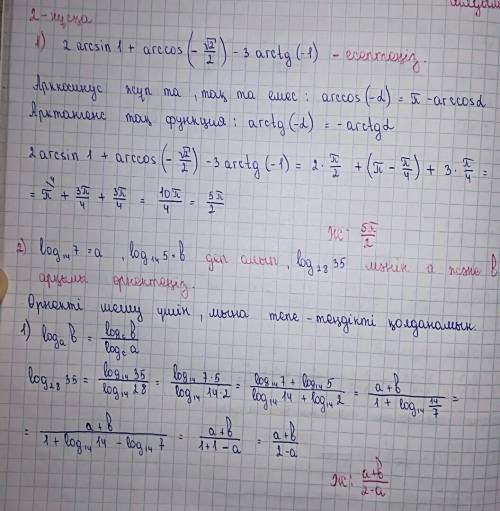 2-нұсқа
1) 2 arcsin 1 + arccos (- √2/2) - 3 arctg (-1) - есептеңіз.
Арккосинус жұп та, тақ та емес: arccos(-α) = π - arccosα
Арктангенс тақ функция: arctg(-α) = -arctgα
2 arcsin 1 + arccos (- √2/2) - 3 arctg (-1) = 2 · π/2 + (π - π/4) + 3 · π/4 =
= π + 3π/4 + 3π/4 = 10π/4 = 5π/2
Ж: 5π/2
2) log₁₄ 7 = a, log₁₄ 5 = b деп алып, log₂₈ 35 мәнін a және b
арқылы өрнектеңіз.
Өрнекті шешу үшін, мына тепе-теңдікті қолданамын.
1) logₐ b = log_c b / log_c a
log₂₈ 35 = log₁₄ 35 / log₁₄ 28 = log₁₄ 7·5 / log₁₄ 14·2 = (log₁₄ 7 + log₁₄ 5) / (log₁₄ 14 + log₁₄ 2) = (a+b) / (1 + log₁₄ 14/7) =
= (a+b) / (1 + log₁₄ 14 - log₁₄ 7) = (a+b) / (1+1-a) = (a+b) / (2-a)
Ж: (a+b) / (2-a)